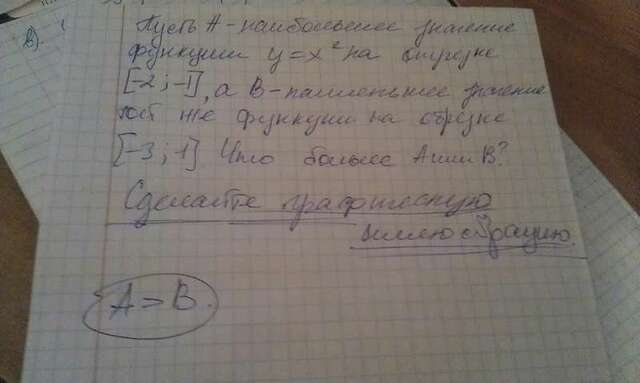 в).
Пусть A - наибольшее значение
функции y = x² на отрезке
[-2; -1], а B - наименьшее значение
той же функции на отрезке
[-3; 1] Что больше A или B?
Сделайте графическую
иллюстрацию.
A > B.